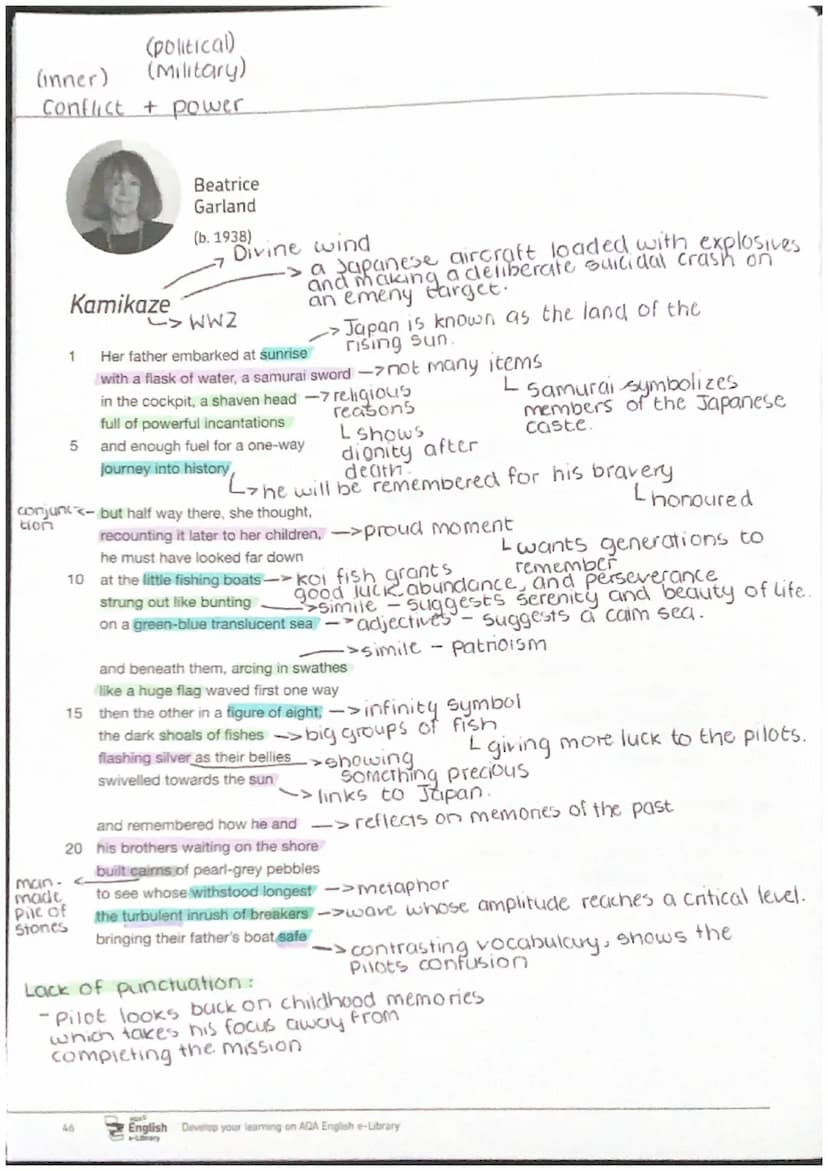 (political)
(inner) (Military)
Conflict + power
Beatrice
Garland
(b. 1938)
Divine wind
a Japanese aircraft loaded with explosives
and making a deliberate suicidal crash on
an emeny target.
Kamikaze
WW2
Japan is known as the land of the
rising sun.
1 Her father embarked at sunrise
with a flask of water, a samurai sword not many items
in the cockpit, a shaven head religious
reasons
Samurai symbolizes
members of the Japanese
caste.
full of powerful incantations
shows
dignity after
death.
5 and enough fuel for a one-way
journey into history
he will be remembered for his bravery
honoured
conjunc-
tion
but half way there, she thought,
recounting it later to her children, proud moment
wants generations to
remember
he must have looked far down
10 at the little fishing boats koi fish grants
good luck, abundance, and perseverance
strung out like bunting simile - suggests serenity and beauty of life.
on a green-blue translucent sea adjectives - suggests a calm sea.
simile - patrioism
and beneath them, arcing in swathes
like a huge flag waved first one way
15 then the other in a figure of eight, infinity symbol
the dark shoals of fishes big groups of fish
giving more luck to the pilots.
flashing silver as their bellies showing
something precious
swivelled towards the sun
links to Japan.
and remembered how he and reflects on memories of the past
20 his brothers waiting on the shore
built cairns of pearl-grey pebbles
man-
made
pile of
stones
to see whose withstood longest metaphor
the turbulent inrush of breakers wave whose amplitude reaches a critical level.
bringing their father's boat safe
contrasting vocabulary, shows the
pilots confusion
Lack of punctuation:
- Pilot looks back on childhood memories
which takes his focus away from
completing the mission
46 AQA English e-Library Develop your learning on AQA English e-Library